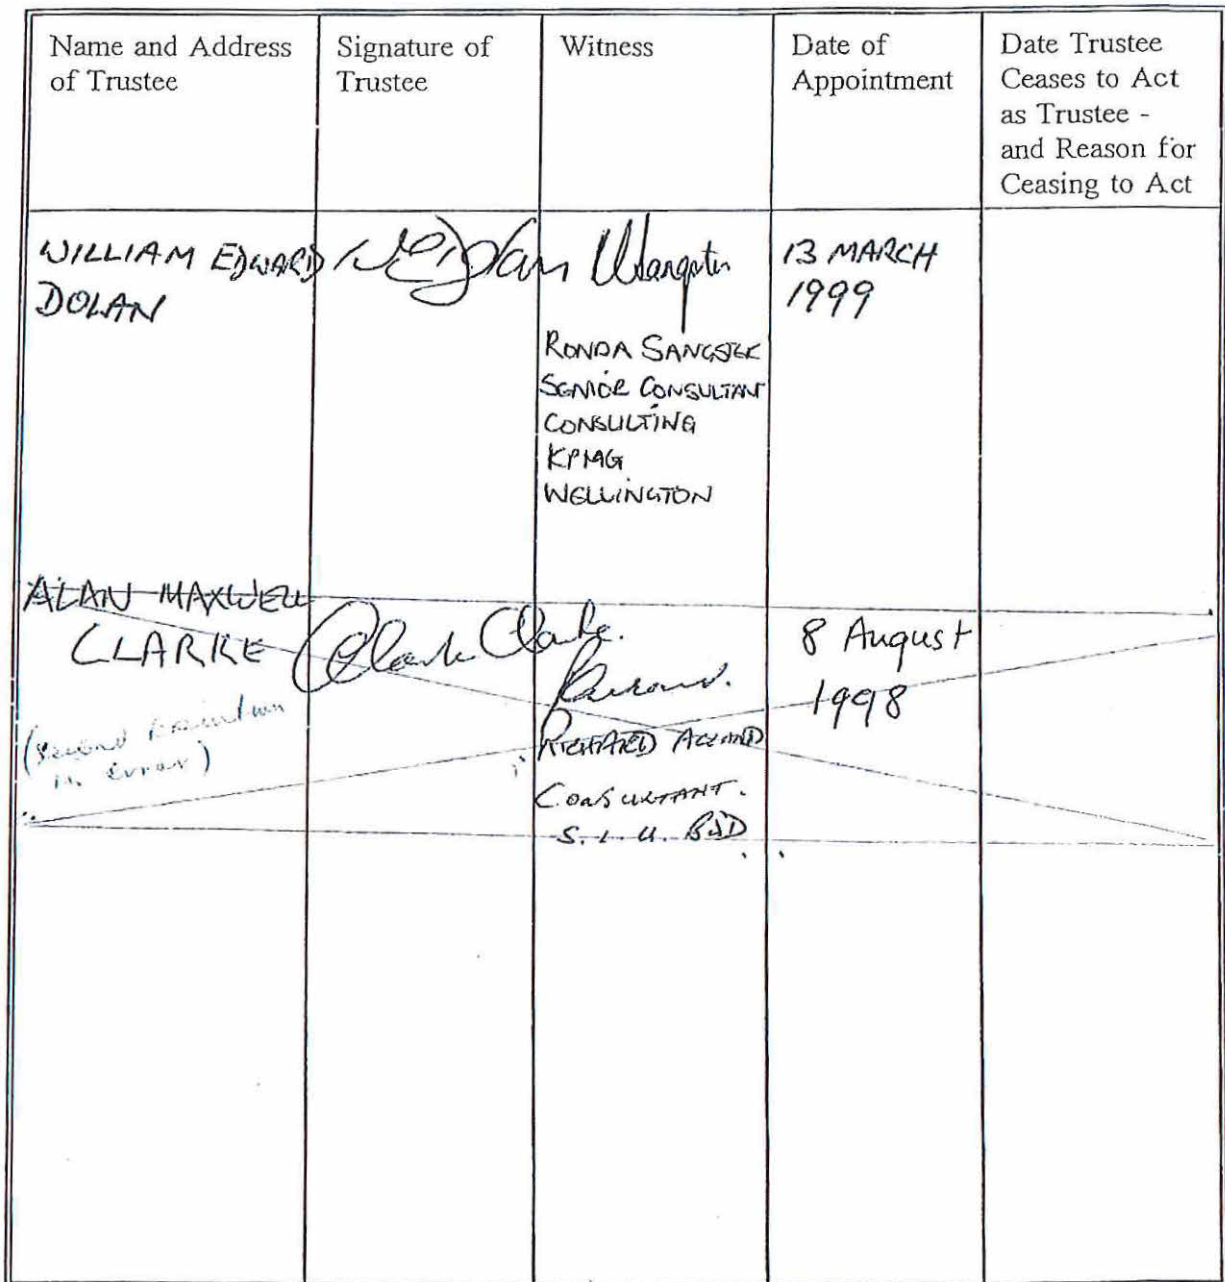 Name and Address
of Trustee
Signature of
Trustee
Witness
Date of
Appointment
Date Trustee
Ceases to Act
as Trustee -
and Reason for
Ceasing to Act
WILLIAM EDWARD
DOLAN
13 MARCH
1999
RONDA SANGSTER
SENIOR CONSULTANT
CONSULTING
KPMG
WELLINGTON
ALAN MAXWELL
CLARKE
(Second Execution
in error)
8 August
1998
RICHARD ACLAND
CONSULTANT.